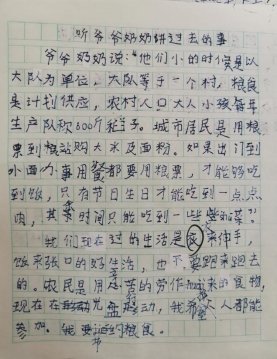 听爷爷奶奶讲过去的事
爷爷奶奶说："他们小的时候是以
大队为单位，大队等于一个村，粮食
是计划供应，农村人口大人小孩每年
生产队称600斤稻子。城市居民是用粮
票到粮站购大米及面粉。如果出门到
外面办事用餐都要用粮票，才能够吃
到饭，只有节日生日才能吃到一点点
肉，其余时间只能吃到一些
我们现在过的生活是衣来伸手，
饭来张口的好生活，也不要跑来跑去
的。农民是用辛苦的劳作 来的食物，
现在在 光盘行动，我希望人人都能
参加，我要节约粮食。